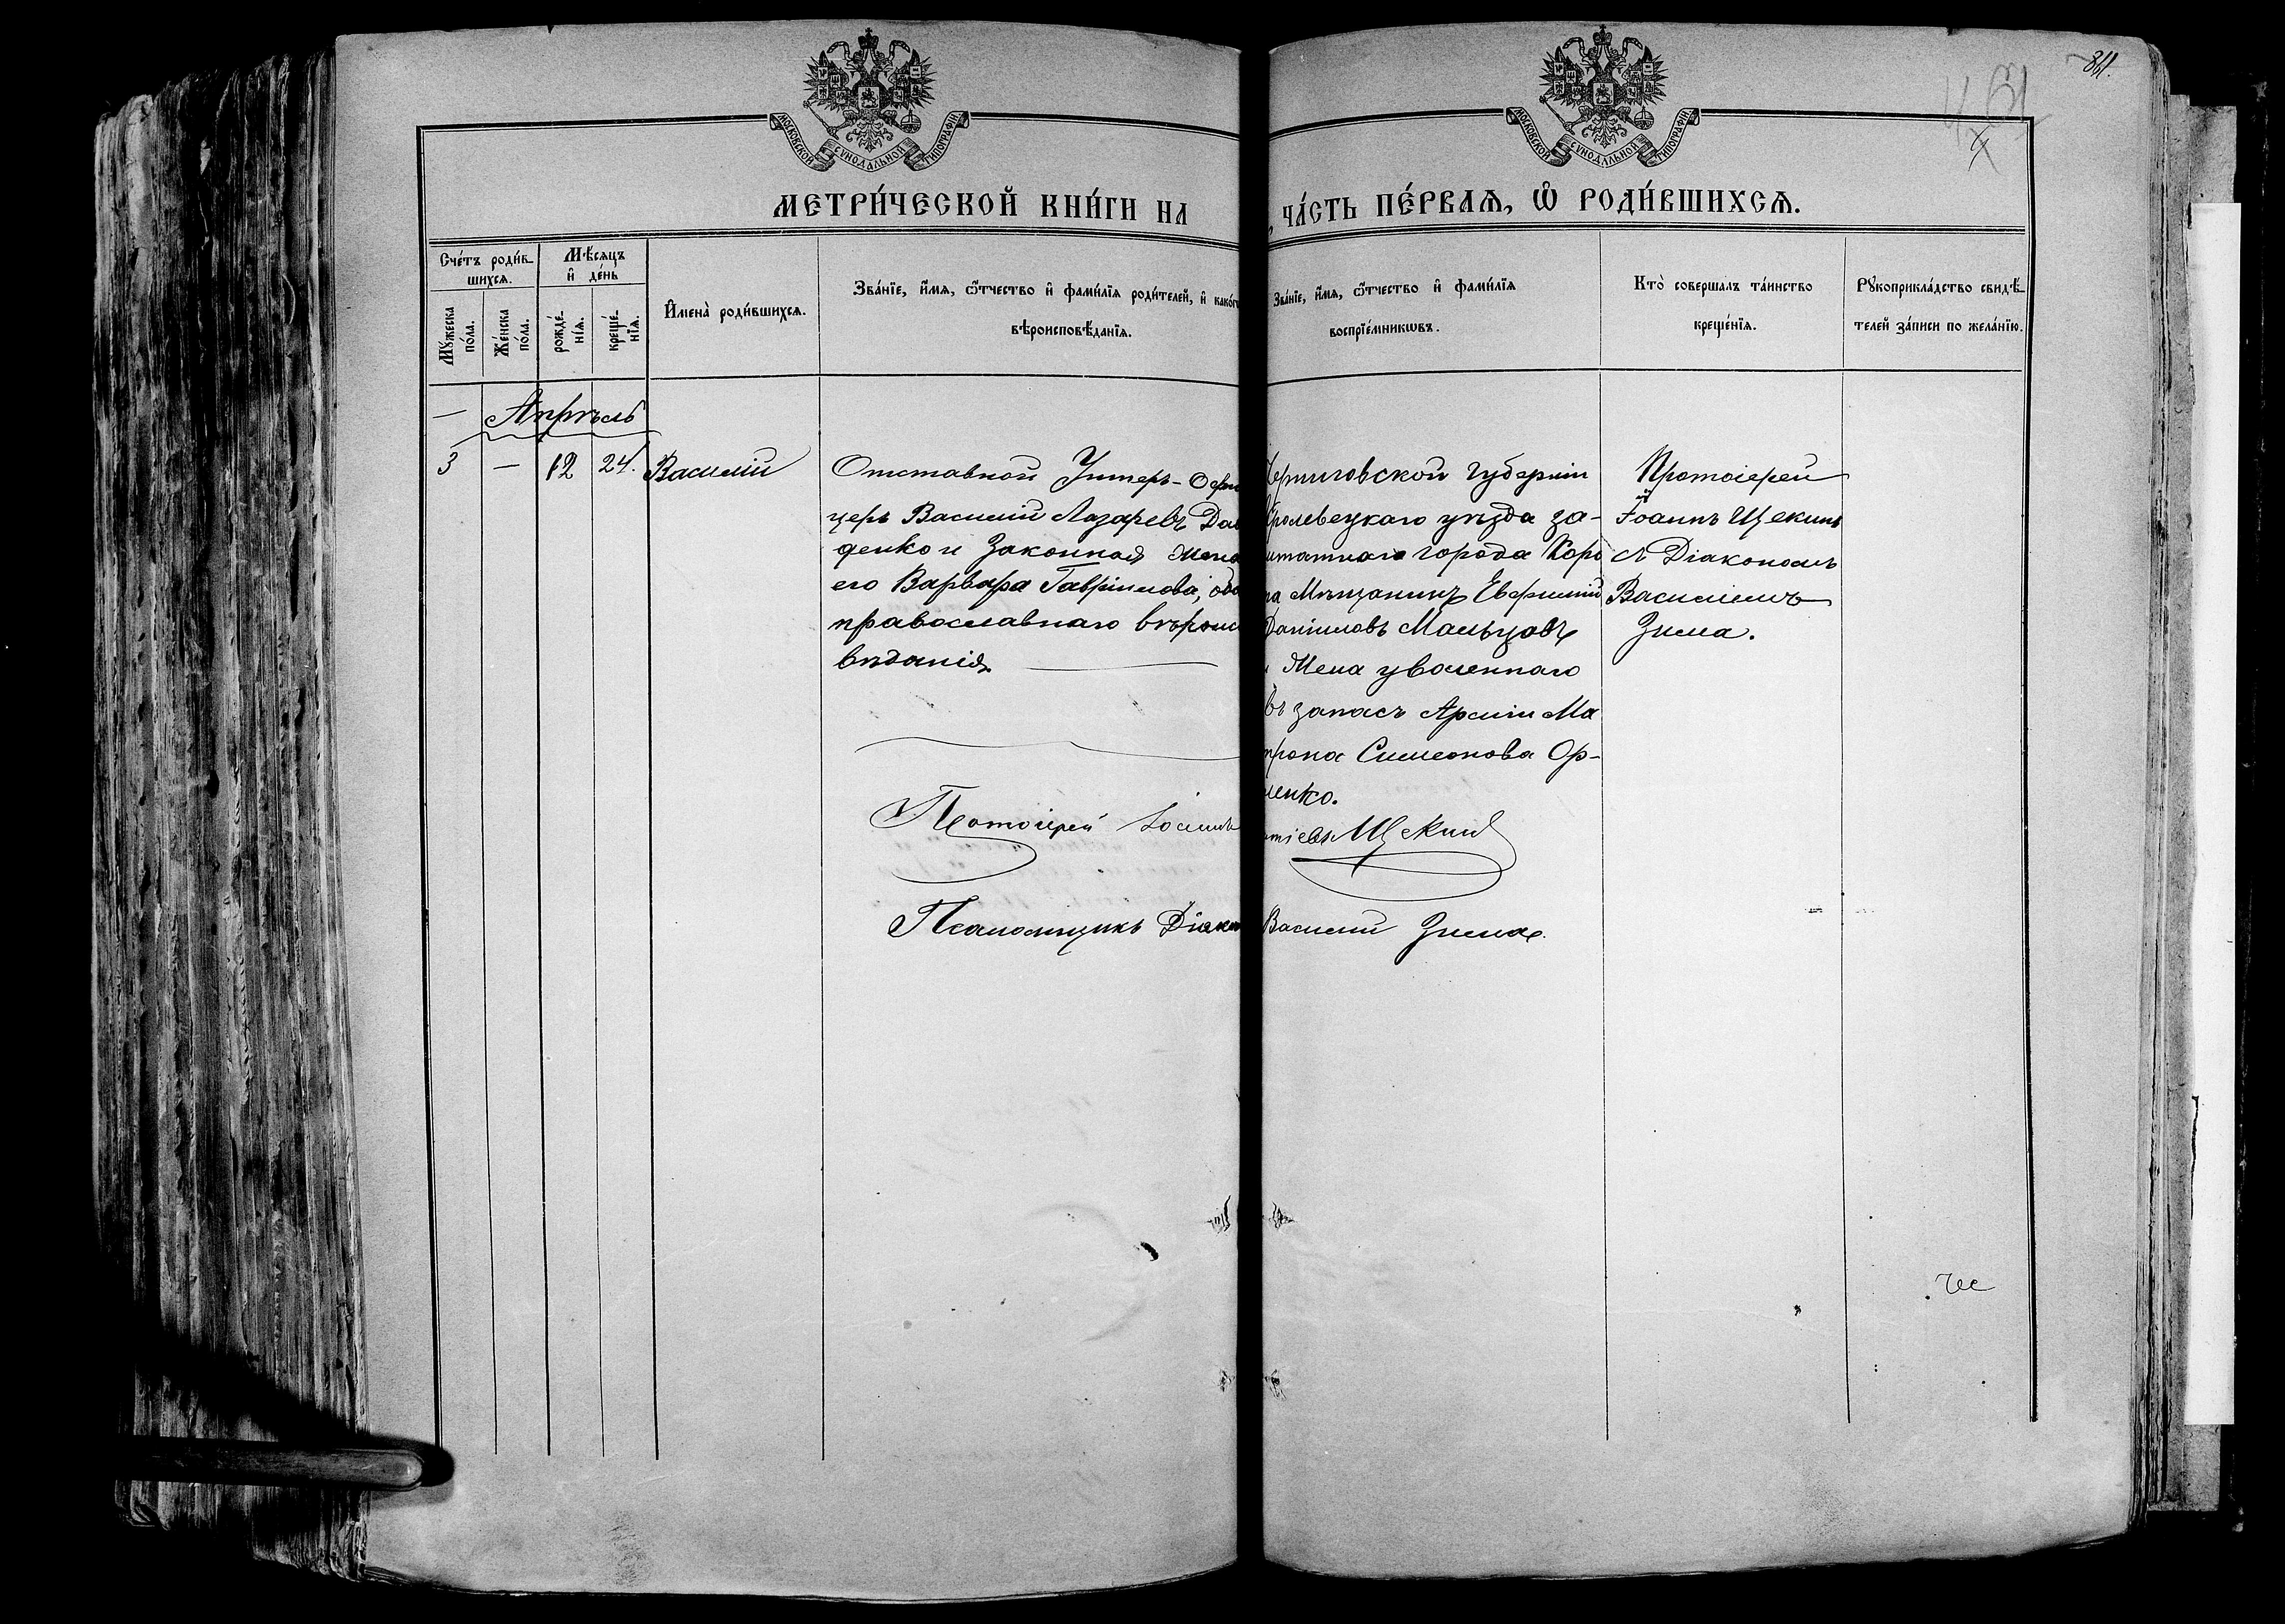 841.
МОСКОВСКОЙ СУНОДАЛЬНОЙ ТИПОГРАФІИ
МОСКОВСКОЙ СУНОДАЛЬНОЙ ТИПОГРАФІИ
МЕТРИ́ЧЕСКОЙ КНИ́ГИ НА
, ЧА́СТЬ ПЕ́РВАѦ, Ѡ РОДИ́ВШИХСѦ.
Сче́тъ роди́в-
шихсѧ.
Мꙋ́жеска по́ла.
Же́нска по́ла.
Мѣ́сѧцъ
и҆ де́нь
рожде́-
нїѧ.
креще́-
нїѧ.
И҆мена̀ роди́вшихсѧ.
Зва́нїе, и҆́мѧ, ѻ҆́тчество и҆ фами́лїѧ роди́телей, и҆ како́г
вѣроисповѣ́данїѧ.
Зва́нїе, и҆́мѧ, ѻ҆́тчество и҆ фами́лїѧ
воспрїе́мникѡвъ.
Кто̀ соверша́лъ та́инство
креще́нїѧ.
Рꙋкоприкла́дство свидѣ́-
телей за́писи по жела́нїю.
— Апрѣль
3 — 12 24. Василій
Отставной Унтеръ-Офи
церъ Василій Лазаревъ Дав
денко и Законная жена
его Варвара Гавріилова, обо
православнаго вѣроис
вѣданія.
Черниговской губерніи
Кролевецкаго уѣзда за-
штатнаго города Коро
па Мѣщанинъ Евфимій
Даніиловъ Мальцовъ
и Жена уволеннаго
въ запасъ Арміи Ма
трона Симеонова Ор-
ленко.
Протоіерей
Іоаннъ Щекинъ
съ Діакономъ
Василіемъ
Зима.
Протоіерей Іоаннъ
тіевъ Щекинъ
Псаломщикъ Діакон
Василій Зима.